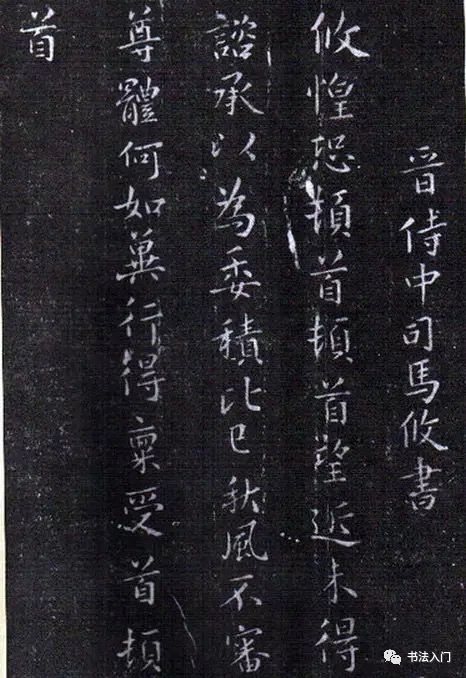 晉侍中司馬攸書
攸惶恐頓首頓首望近未得
諮承以為委積比已秋風不審
尊體何如冀行得稟受首頓
首
书法入门